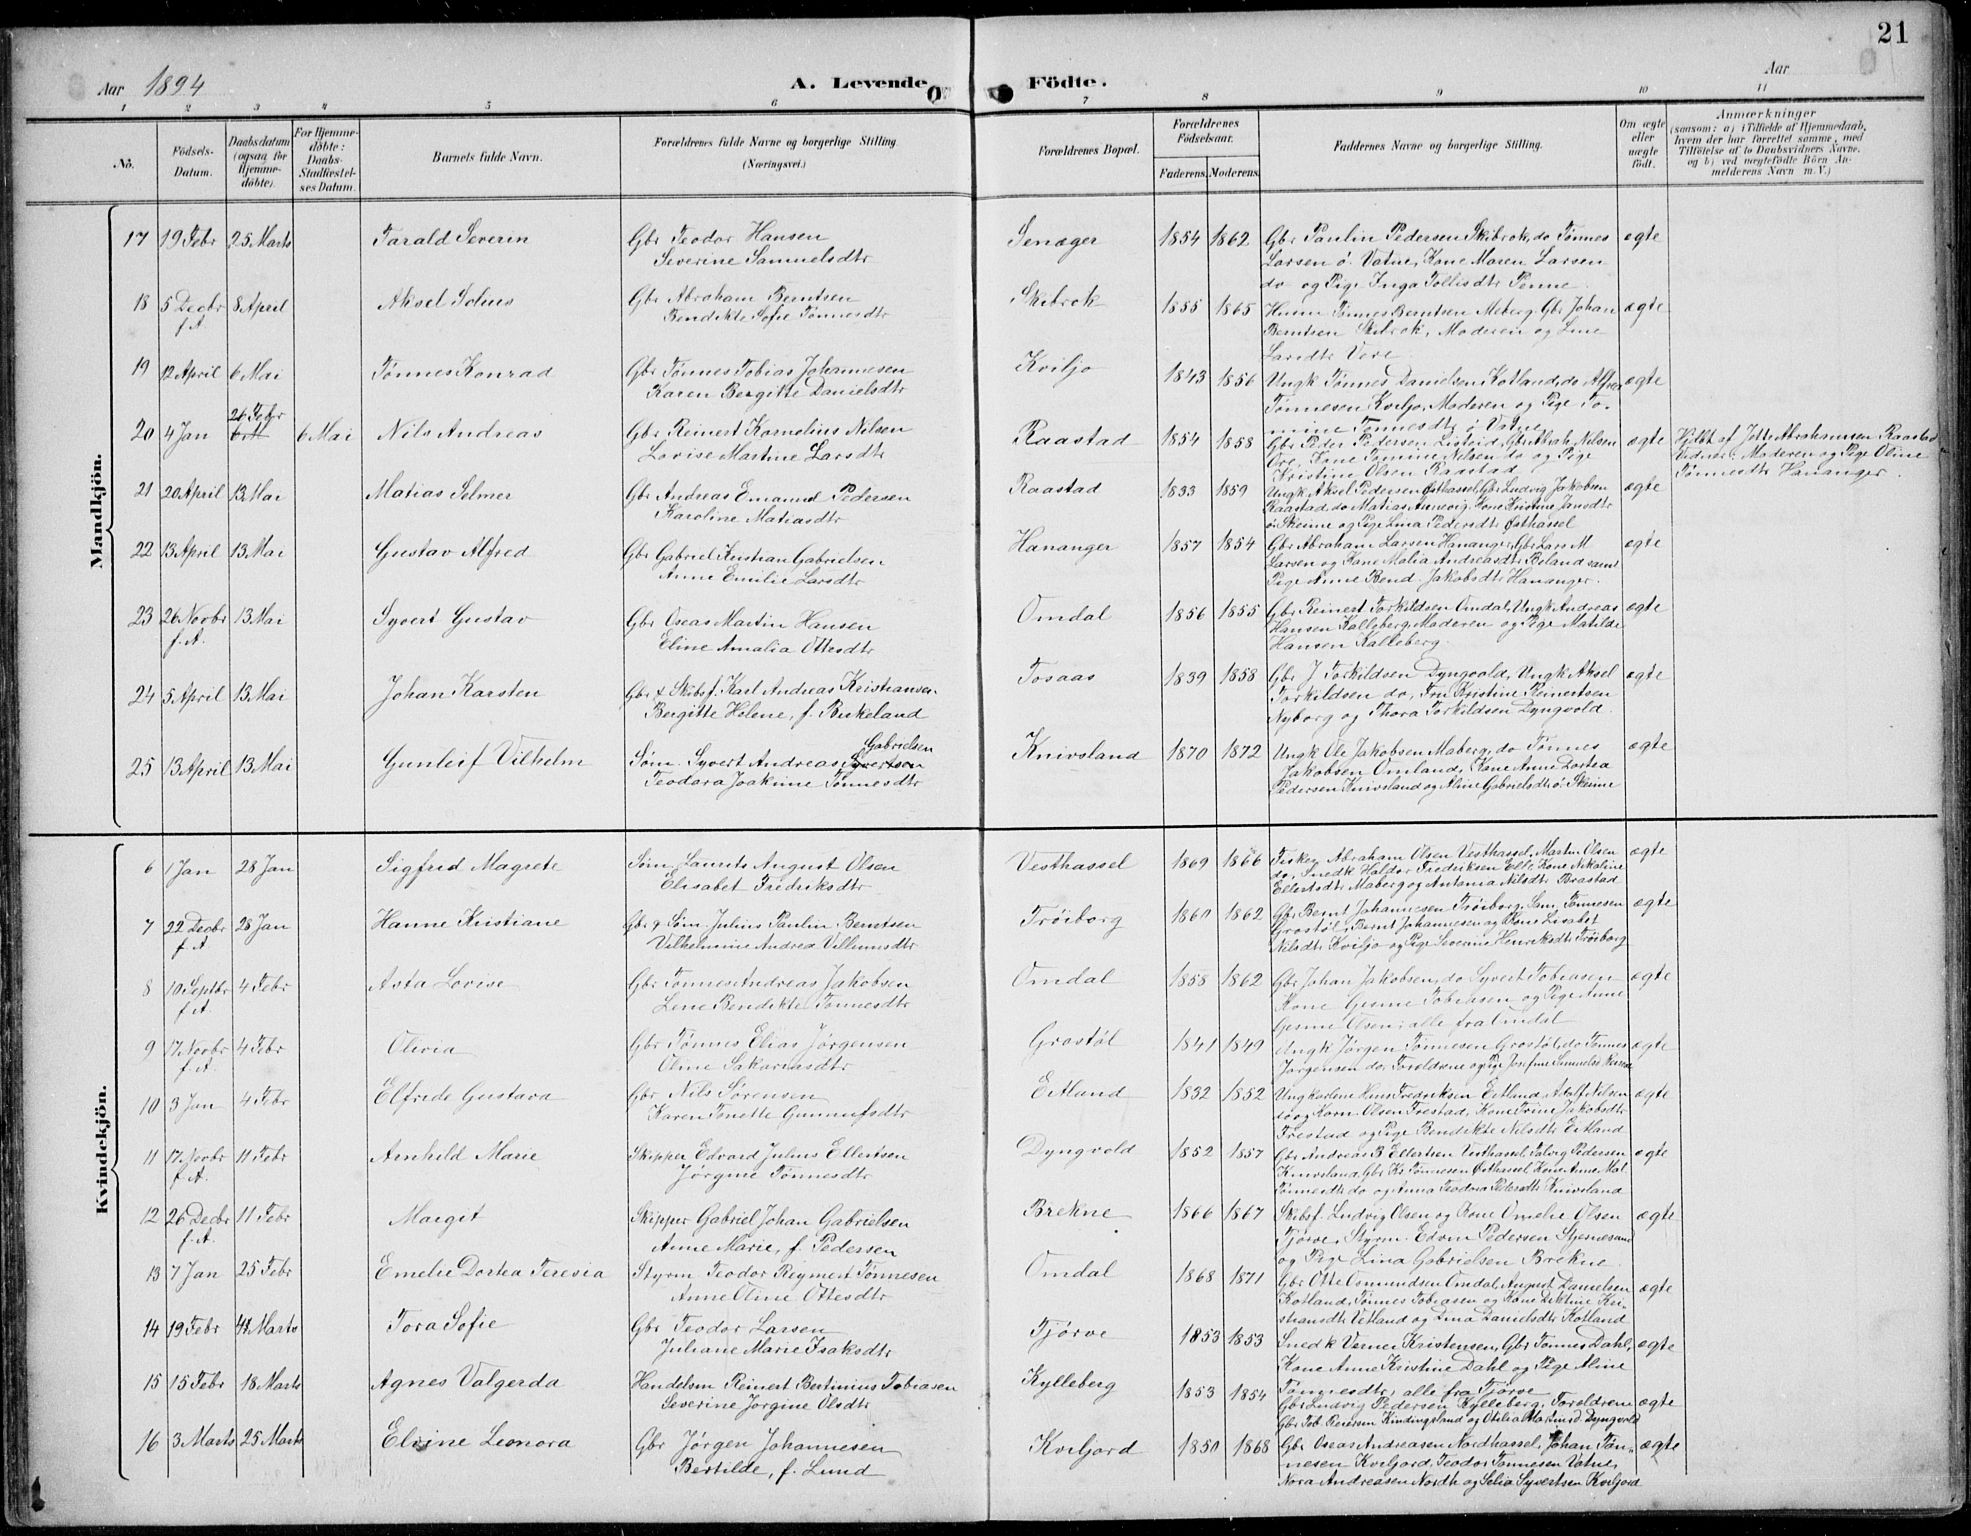 21
Aar 1894
A. Levende
Födte.
Aar
1 2 3 4 5 6 7 8 9 10 11
No.
Födsels-Datum.
Daabsdatum (ogsaa for Hjemme-döbte).
For Hjemme-döbte: Daabs-Stadfæstel-ses Datum.
Barnets fulde Navn.
Forældrenes fulde Navne og borgerlige Stilling (Næringsvei.)
Forældrenes Bopæl.
Forældrenes Födselsaar.
Faderens. Moderens.
Faddernes Navne og borgerlige Stilling.
Om ægte eller uægte födt.
Anmærkninger
(saasom: a) i Tilfælde af Hjemmedaab, hvem der har forrettet samme, med Tilföielse af to Daabsvidners Navne, og b) ved uægtefödte Börn An-melderens Navn m. V.)
Mandkjön.
17 19 Febr 25 Marts Tarald Severin Gbr Teodor Hansen Senæger 1854 1862 Gbr Paulin Pedersen Skibrok, do Tønnes ægte
Severine Samuelsdtr Larsen ø. Vatne, Kone Maren Larsen
do og Pige Inga Tollisdtr Penne
18 5 Decbr 8 April Aksel Gbr Abraham Berntsen Skibrok 1855 1865 Tønnes Berntsen Meberg, Gbr Johan ægte
f.A. Bendikte Sofie Tønnesdtr Berntsen Skibrok, Moderen og Line
Larsdtr Vere
19 12 April 6 Mai Tønnes Konrad Gbr Tønnes Tobias Johannesen Kviljo 1843 1856 Ungk Tønnes Danielsen Kotland, do Alfred ægte
Karen Bergitte Danielsdtr Tønnesen Kviljo, Moderen og Pige To-
mine Tønnesdtr ø Vatne
20 4 Jan 26 Febr 6 Mai Nils Andreas Gbr Reinert Kornelius Nilsen Raastad 1854 1858 Gbr Peder Pedersen Listeid, Gbr Abrah. Nilsen ægte Hjdbt af Abrahamsen Raastad
Lovise Martine Larsdtr Øre, Kone Tomine Nilsen do og Pige Vidner: Moderen og Pige Oline
Kristine Olsen Raastad Tønnesdtr Hananger.
21 20 April 13 Mai Matias Selmer Gbr Andreas Emanuel Pedersen Raastad 1833 1859 Ungk Aksel Pedersen Østhassel, Gbr Ludvig Jakobsen ægte
Karoline Matiasdtr Raastad, do Matias Kone Kristine Jansdtr
ø. Skeime og Pige Lina Pedersdtr Østhassel
22 13 April 13 Mai Gustav Alfred Gbr Gabriel Kristian Gabrielsen Hananger 1857 1854 Gbr Abraham Larsen Hananger, Gbr Lars M. ægte
Anne Emilie Larsdtr Larsen og Kone Malia Andreasdtr Beland samt
Pige Anne Bend. Jakobsdtr Hananger.
23 26 Novbr 13 Mai Syvert Gustav Gbr Oseas Martin Hansen Omdal 1856 1855 Gbr Reinert Torkildsen Omdal, Ungk Andreas ægte
f.A. Eline Amalia Ottesdtr Hansen Kalleberg, Moderen og Pige Matilde
Hansen Kalleberg.
24 5 April 13 Mai Johan Karsten Gbr & Skibsf. Karl Andreas Kristiansen Tosaas 1839 1858 Gbr J. Torkildsen Dyngvold, Ungk Aksel ægte
Bergitte Helene, f. Birkeland Torkildsen do, Fru Kristine Reinertsen
Nyborg og Thora Torkildsen Dyngvold.
25 13 April 13 Mai Gunleif Vilhelm Søm. Syvert Andreas Gabrielsen Knivsland 1870 1872 Ungk Ole Jakobsen Maberg, do Tønnes ægte
Teodora Joakime Tønnesdtr Jakobsen Omland, Kone Anne Dortea
Pedersen Knivsland og Aline Gabrielsdtr ø. Skeime
Kvindekjön.
6 1 Jan 28 Jan Sigfrid Magrete Søm Laurits August Olsen Vesthassel 1869 1866 Fisker Abraham Olsen Vesthassel, Martin Olsen ægte
Elisabet Fredriksdtr do, Snedk Haldor Frederiksen Kone Nikoline
Ellertsdtr Maberg og Antonia Nilsdtr Braastad
7 22 Decbr 28 Jan Hanne Kristiane Gbr & Søm. Julius Paulin Berntsen Trøiborg 1860 1862 Gbr Bernt Johannesen Trøiborg, Sam. Tønnesen ægte
f.A. Vilhelmine Andrea Villumsdtr Grostøl, Bernt Johannesen og Kone Lisabet
Nilsdtr Kviljo og Pige Severine Henriksdtr Trøiborg
8 10 Septbr 4 Febr Asta Lovise Gbr Tønnes Andreas Jakobsen Omdal 1858 1862 Gbr Johan Jakobsen, do Syvert Tobiasen ægte
f.A. Lene Bendikte Tønnesdtr Kone Gesine Tobiasen og Pige Anne
Gesine Olsen, alle fra Omdal
9 17 Novbr 4 Febr Olivia Gbr Tønnes Elias Jørgensen Grostøl 1841 1849 Ungk Jørgen Tønnesen Grostøl, do Tønnes ægte
f.A. Oline Sakariasdtr Jørgensen do, Forældrene og Pige Josefine Samuelsd
10 3 Jan 4 Febr Elfrede Gustava Gbr Nils Sørensen Eitland 1832 1852 Ungkarlene Hans Fredriksen Eitland, Adolf Nilsen ægte
Karen Tonette Gunnufsdtr do og Karn. Olsen Frestad, Kone Trine Jakobsdtr
Frestad og Pige Bendikte Nilsdtr Eitland
11 17 Novbr 11 Febr Arnhild Marie Skipper Edvard Julius Ellertsen Dyngvold 1852 1857 Gbr Andreas B Ellertsen Vesthassel, Salvig Pedersen ægte
f.A. Jørgine Tønnesdtr Knivsland, Gbr Kr. Tønnesen Østhassel, Kone Anne Mal.
Tønnesdtr do og Anna Teodora Pedersdtr Knivsland
12 26 Decbr 11 Febr Margit Skipper Gabriel Johan Gabrielsen Brekne 1866 1867 Skibsf. Ludvig Olsen og Kone Omelie Olsen ægte
f.A. Anne Marie, f. Pedersen Tjørve, Styrm. Edvin Pedersen Stjernesund
og Pige Lina Gabrielsen Brekne.
13 7 Jan 25 Febr Emelie Dortea Teresia Styrm Teodor Regmert Tønnesen Omdal 1868 1871 Gbr Otte Osmundsen Omdal, August Danielsen ægte
Anne Oline Ottesdtr Kotland, Tønnes Tobiasen og Kone Diktine Kri-
stiansdtr Vetland og Dina Danielsdtr Kotland
14 19 Febr Marts Tora Sofie Gbr Teodor Larsen Tjørve 1853 1853 Snedk Verner Kristensen, Gbr Tønnes Dahl, ægte
Juliane Marie Isaksdtr Kone Anne Kristine Dahl og Pige Aline
Tønnesdtr, alle fra Tjørve
15 15 Febr 18 Marts Agnes Valgerda Handelsm Reinert Bertinius Tobiasen Kylleberg 1853 1854 Gbr Ludvig Pedersen Kylleberg, Forældrene ægte
Severine Jørgine Olsdtr Gbr Tob. Reiersen Kindingsland og Otilia Dyngvold
16 3 Marts 25 Marts Elvine Leonora Gbr Jørgen Johannesen Kviljord 1850 1868 Gbr Oseas Andreasen Nordhassel, Johan Tøn- ægte
Bertilde, f. Lund nesen Kviljord, Teodor Tønnesen Vatne,
Nora Andreasen Nordh og Selia Syvertsen Kviljord